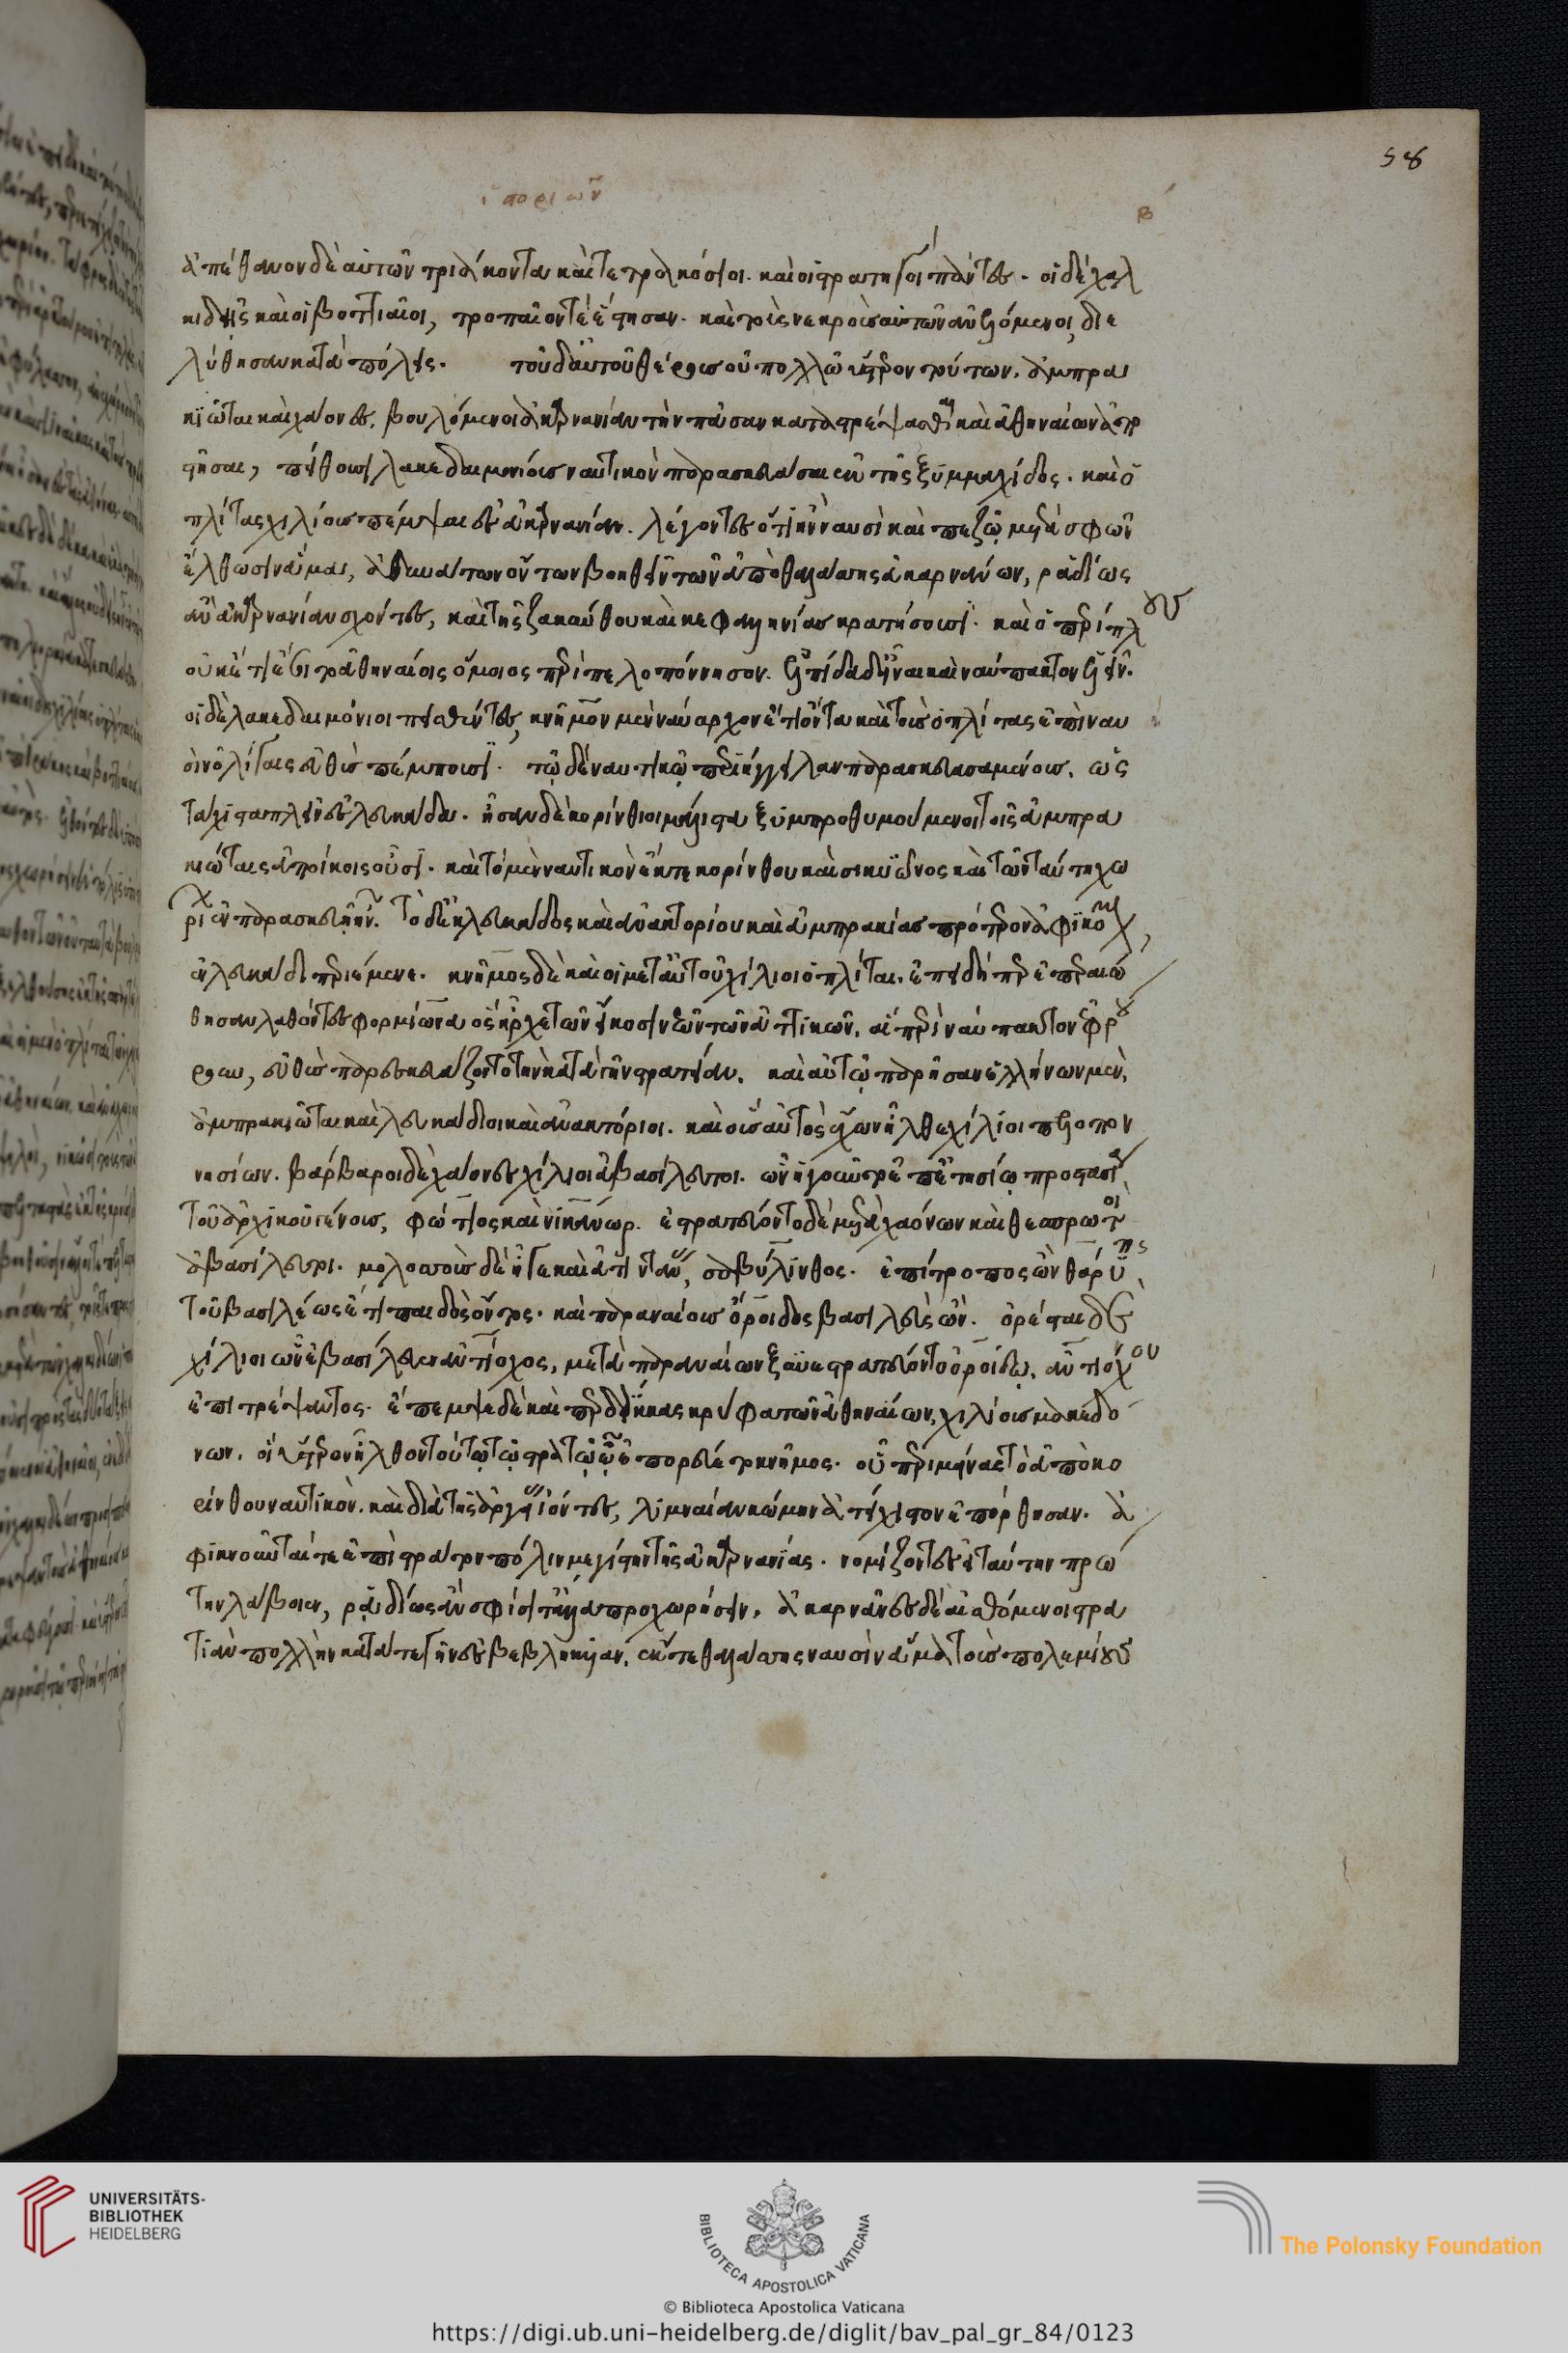 ἀπέθανον δὲ αὐτῶν τριάκοντα καὶ τετρακόσιοι. καὶ οἱ στρατηγοὶ πάντες. οἱ δὲ χαλ
κιδεῖς καὶ οἱ βοττιαῖοι, τροπαῖόν τε ἔστησαν. καὶ τοὺς νεκροὺς αὐτῶν ἀνελόμενοι, διε
λύθησαν κατὰ πόλεις. τοῦ δ' αὐτοῦ θέρους οὐ πολλῶ ὕστερον τούτων, ἀμπρα
κιῶται καὶ χάονες, βουλόμενοι ἀκαρνανίαν τὴν πᾶσαν καταστρέψασθαι καὶ ἀθηναίων ἀπο
στῆσαι, πείθουσι λακεδαιμονίους ναυτικὸν παρασκευάσαι ἐκ τῆς ξυμμαχίδος. καὶ ὁ
πλίτας χιλίους πέμψαι ἐς ἀκαρνανίαν. λέγοντες ὅτι ἢν ναυσὶ καὶ πεζῷ μετὰ σφῶν
ἔλθωσιν ἅμα, ἀδυνάτων ὄντων βοηθεῖν τῶν ἀπὸ θαλάσσης ἀκαρνάνων, ῥαδίως
ἂν ἀκαρνανίαν σχόντες, καὶ τῆς ζακύνθου καὶ κεφαλληνίας κρατήσουσι. καὶ ὁ περίπλους
οὐκέτι ἔσοιτο ἀθηναίοις ὅμοιος περὶ πελοπόννησον. ἐλπίδα δ' εἶναι καὶ ναύπακτον λαβεῖν.
οἱ δὲ λακεδαιμόνιοι πεισθέντες, κνῆμον μὲν ναύαρχον ἔτι ὄντα καὶ τοὺς ὁπλίτας ἐπὶ ναυ
σὶν ὀλίγαις εὐθὺς πέμπουσι. τῷ δὲ ναυτικῷ περιήγγειλαν παρασκευασαμένοις, ὡς
τάχιστα πλεῖν ἐς λευκάδα. ἦσαν δὲ κορίνθιοι μάλιστα ξυμπροθυμούμενοι τοῖς ἀμπρα
κιώταις ἀποίκοις οὖσι. καὶ τὸ μὲν ναυτικὸν ἔκ τε κορίνθου καὶ σικυῶνος καὶ τῶν ταύτῃ χω
ρίων ἐν παρασκευῇ ἦν. τὸ δ' ἐκ λευκάδος καὶ ἀνακτορίου καὶ ἀμπρακίας πρότερον ἀφικόμενον,
ἐν λευκάδι περιέμενε. κνῆμος δὲ καὶ οἱ μετ' αὐτοῦ χίλιοι ὁπλῖται, ἐπειδὴ ἐπεραιώ
θησαν λαθόντες φορμίωνα ὃς ἦρχε τῶν εἴκοσι νεῶν τῶν ἀττικῶν, αἳ περὶ ναύπακτον ἐφρού
ρουν, εὐθὺς παρεσκευάζοντο τὴν κατὰ γῆν στρατείαν. καὶ αὐτῷ παρῆσαν ἑλλήνων μὲν,
ἀμπρακιῶται καὶ λευκάδιοι καὶ ἀνακτόριοι. καὶ οὓς αὐτὸς ἔχων ἦλθε χίλιοι πελοπον
νησίων. βάρβαροι δὲ χάονες χίλιοι ἀβασίλευτοι. ὧν ἡγοῦντο ἐπετησίῳ προστασίᾳ
τοῦ ἀρχικοῦ γένους, φώτιος καὶ νικάνωρ. ἐστρατεύοντο δὲ μετὰ χαόνων καὶ θεσπρωτοὶ
ἀβασίλευτοι. μολοσσοὺς δὲ ἦγε καὶ ἀτιντᾶνας, σαβύλινθος. ἐπίτροπος ὢν θαρύπης
τοῦ βασιλέως ἔτι παιδὸς ὄντος. καὶ παραυαίους ὄροιδος βασιλεὺς ὤν. ὀρέσται δὲ
χίλιοι ὧν ἐβασίλευεν ἀντίοχος, μετὰ παραυαίων ξυνεστρατεύοντο ὀροίδῳ, ἀντιόχου
ἐπιτρέψαντος. ἔπεμψε δὲ καὶ περδίκκας κρύφα τῶν ἀθηναίων, χιλίους μακεδό
νων. οἳ ὕστερον ἦλθον τούτῳ τῷ στρατῷ ἐπορεύετο κνῆμος. οὐ περιμείνας τὸ ἀπὸ κο
ρίνθου ναυτικὸν. καὶ διὰ τῆς ἀργείας ἰόντες, λιμναίαν κώμην ἀτείχιστον ἐπόρθησαν. ἀ
φικνοῦνταί τε ἐπὶ στράτον πόλιν μεγίστην τῆς ἀκαρνανίας. νομίζοντες εἰ ταύτην πρώ
την λάβοιεν, ῥᾳδίως ἂν σφίσι τἄλλα προχωρήσειν. ἀκαρνᾶνες δὲ αἰσθόμενοι στρα
τιὰν πολλὴν κατά τε γῆν ἐσβεβληκυῖαν, ἔκ τε θαλάσσης ναυσὶν ἅμα τοὺς πολεμίους
UNIVERSITÄTS-
BIBLIOTHEK
HEIDELBERG
BIBLIOTECA APOSTOLICA VATICANA
The Polonsky Foundation
© Biblioteca Apostolica Vaticana
https://digi.ub.uni-heidelberg.de/diglit/bav_pal_gr_84/0123